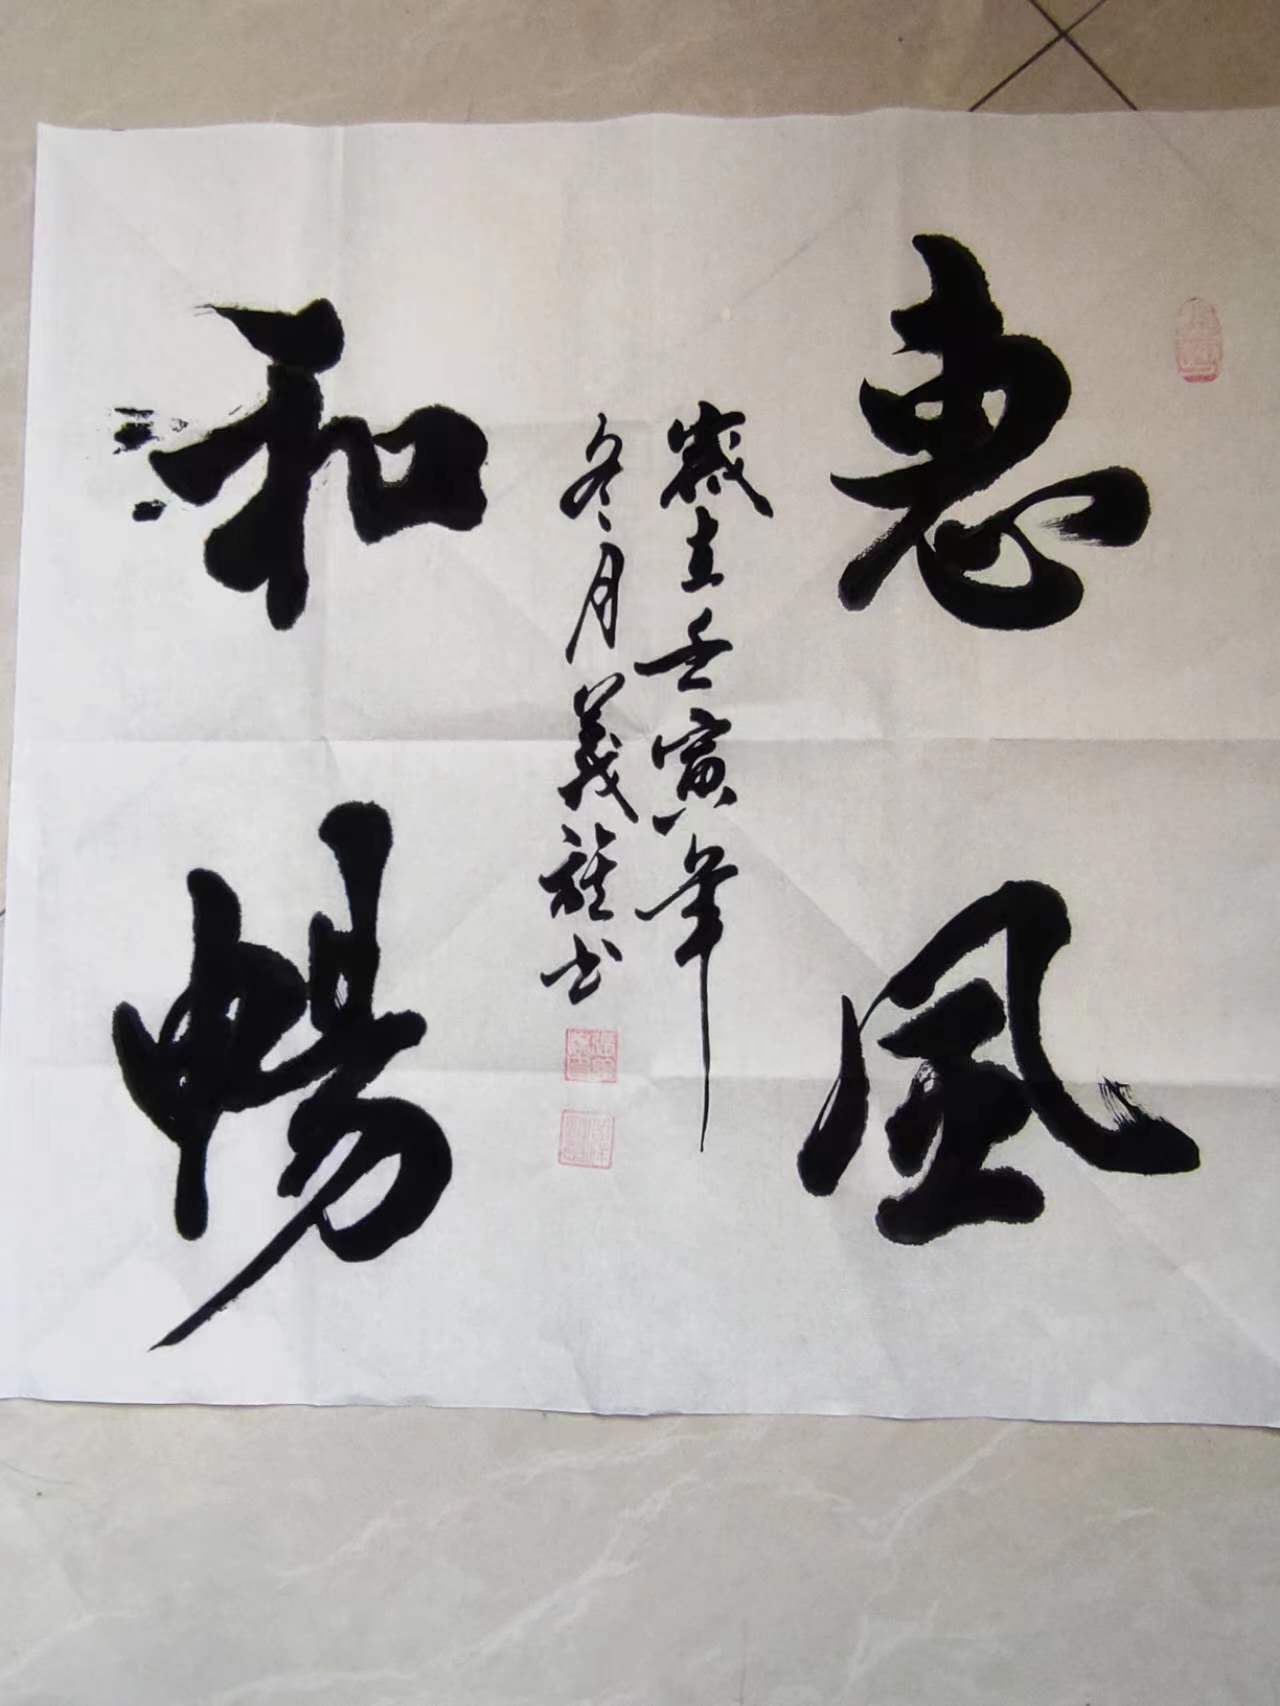 惠風
和暢
歲在壬寅年
冬月義龍书